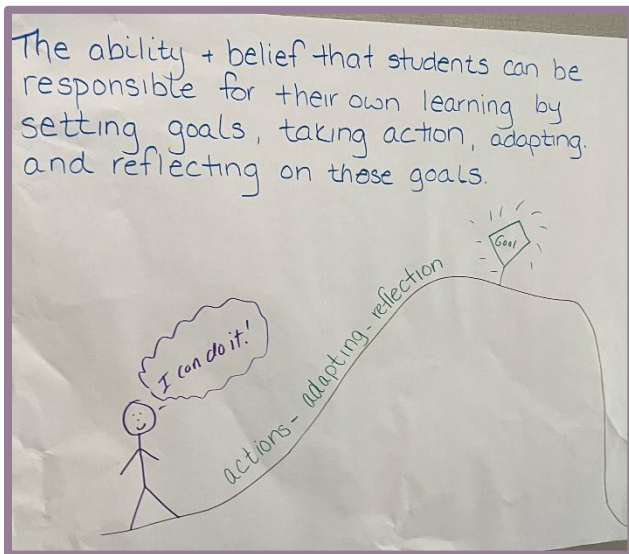 The ability + belief that students can be
responsible for their own learning by
setting goals, taking action, adapting.
and reflecting on these goals.
Goal
I can do it!
actions - adapting - reflection